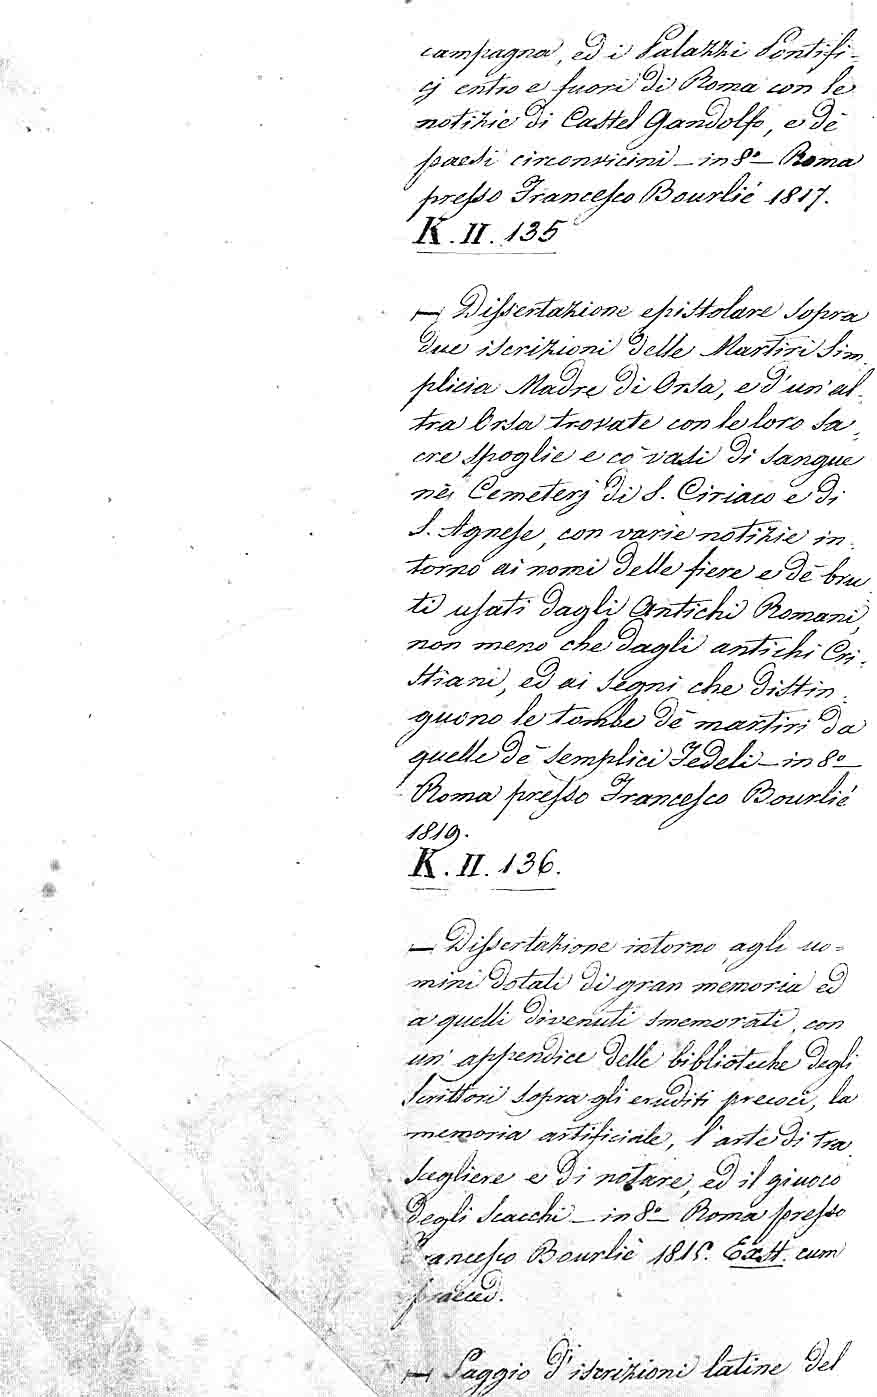 campagna, ed i Palazzi Pontifi=
cj entro e fuori di Roma con le
notizie di Castel Gandolfo, e dè
paesi circonvicini _ in 8.º _ Roma
presso Francesco Bourlié 1817.
K. II. 135
— Dissertazione epistolare sopra
due iscrizioni delle Martiri Sim=
plicia Madre di Orsa, e d'un'al=
tra Orsa trovate con le loro sa=
cre spoglie e cò vasi di sangue
nèi Cemeterj di S. Ciriaco e di
S. Agnese, con varie notizie in=
torno ai nomi delle fiere e dè bru=
ti usati dagli Antichi Romani,
non meno che dagli antichi Cri=
stiani, ed ai segni che distin=
guono le tombe dè martiri da
quelle dè semplici Fedeli _ in 8.º _
Roma presso Francesco Bourlié
1819.
K. II. 136.
— Dissertazione intorno agli uo=
mini dotati di gran memoria ed
a quelli divenuti smemorati, con
un' appendice delle biblioteche degli
Scrittori sopra gli eruditi precoci, la
memoria artificiale, l'arte di tra=
scegliere e di notare, ed il giuoco
degli Scacchi _ in 8.º _ Roma presso
Francesco Bourliè 1815. Ex H. cum
praeced.
— Saggio d'iscrizioni latine del